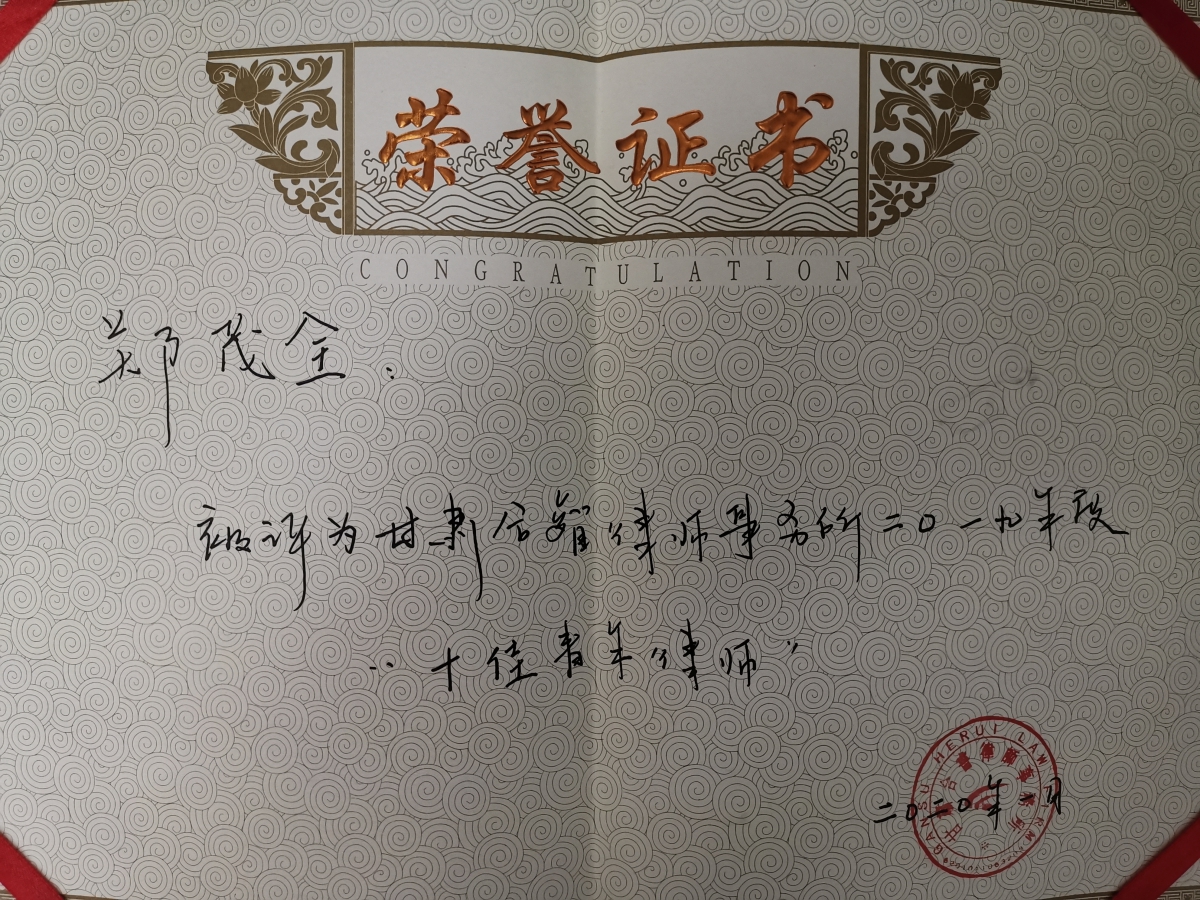 荣誉证书
CONGRATULATION
郑茂全:
被评为甘肃合睿律师事务所二0一九年度
“十佳青年律师”
GANSU HERUI LAW FIRM
甘肃合睿律师事务所
二0二0年一月